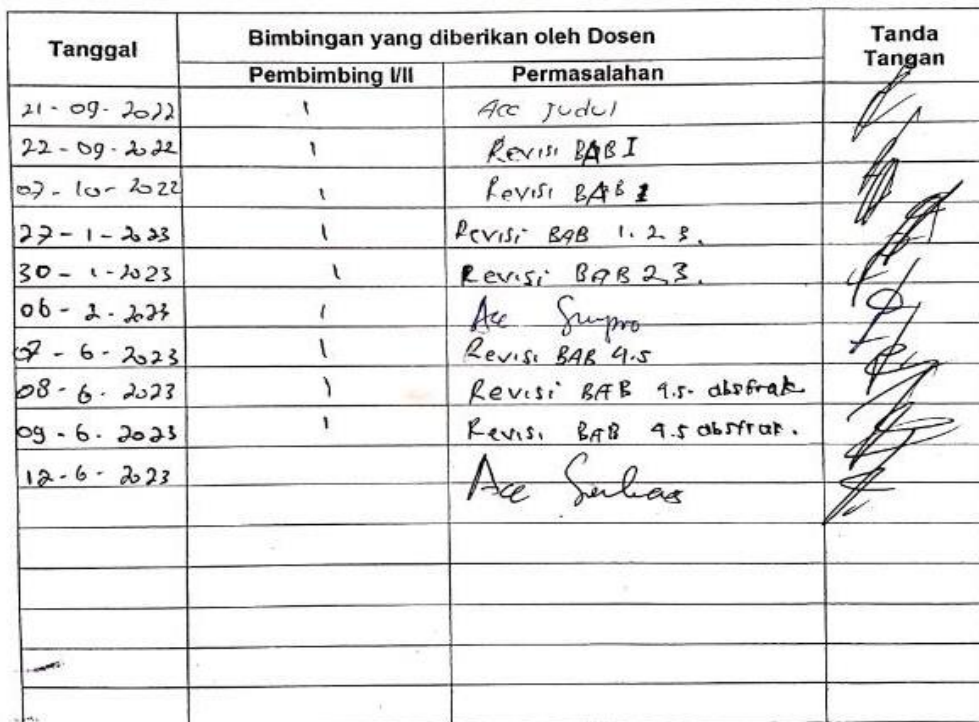 Tanggal Bimbingan yang diberikan oleh Dosen Tanda Tangan
Pembimbing I/II Permasalahan
21 - 09 - 2022 1 Acc Judul
22 - 09 - 2022 1 Revisi BAB I
07 - 10 - 2022 1 Revisi BAB 1
27 - 1 - 2023 1 Revisi BAB 1. 2 3.
30 - 1 - 2023 1 Revisi BAB 2,3.
06 - 2 - 2023 1 Acc Sempro
07 - 6 - 2023 1 Revisi BAB 4.5
08 - 6 - 2023 1 Revisi BAB 4.5- abstrak
09 - 6 - 2023 1 Revisi BAB 4.5 abstrak.
12 - 6 - 2023 Acc